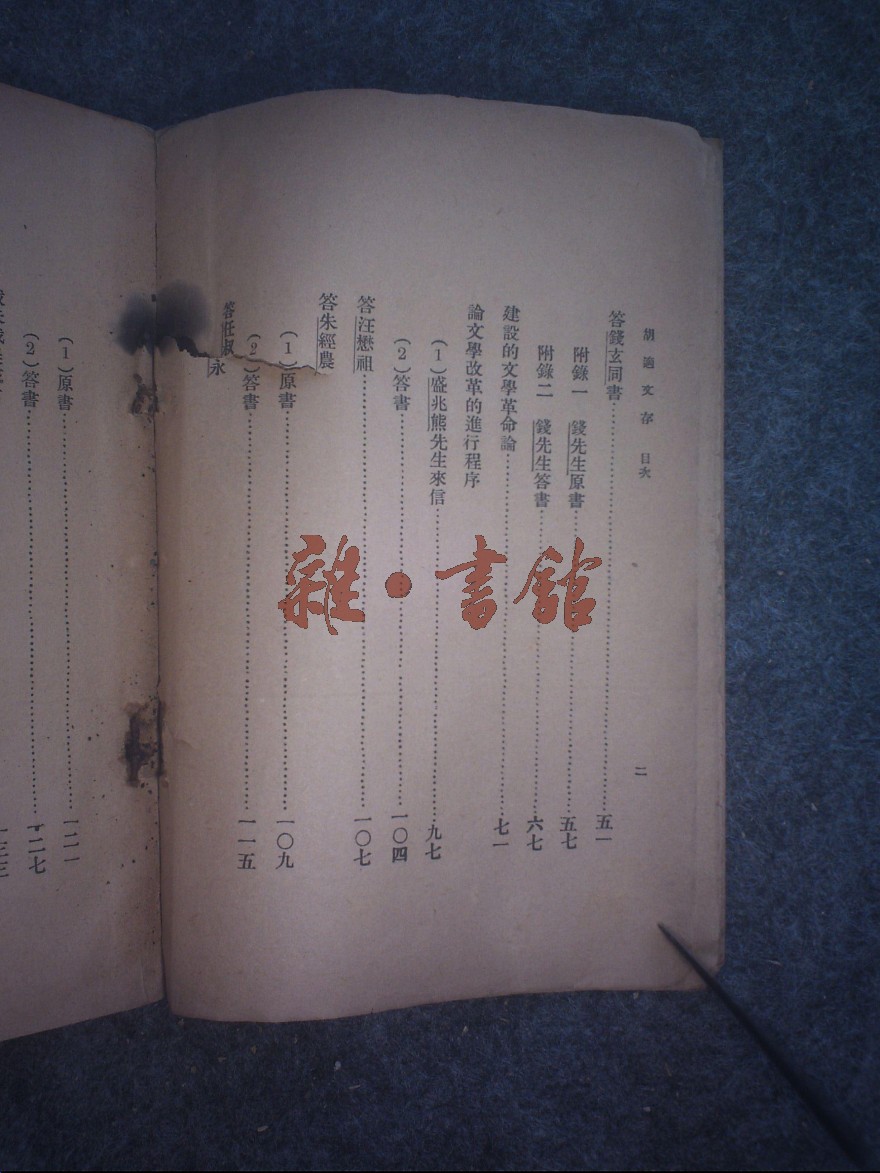 胡適文存 目次
二
答錢玄同書……五一
附錄一 錢先生原書……五七
附錄二 錢先生答書……六七
建設的文學革命論……七一
論文學改革的進行程序
(1)盛兆熊先生來信……九七
(2)答書……一〇四
答汪懋祖……一〇七
答朱經農
(1)原書……一〇九
(2)答書……一一五
答任叔永
(1)原書……一二一
(2)答書……一二七
一三三
雜·書館